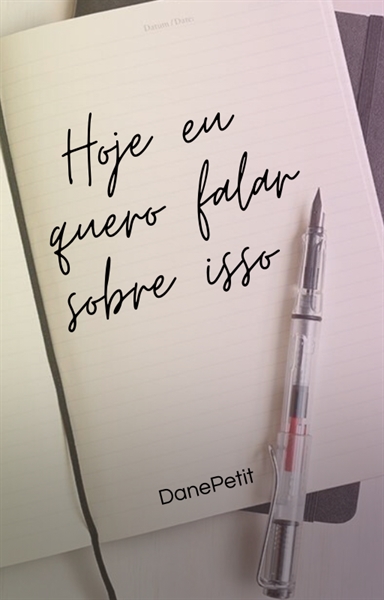 Datum / Date:
Hoje eu
quero falar
sobre isso
DanePetit